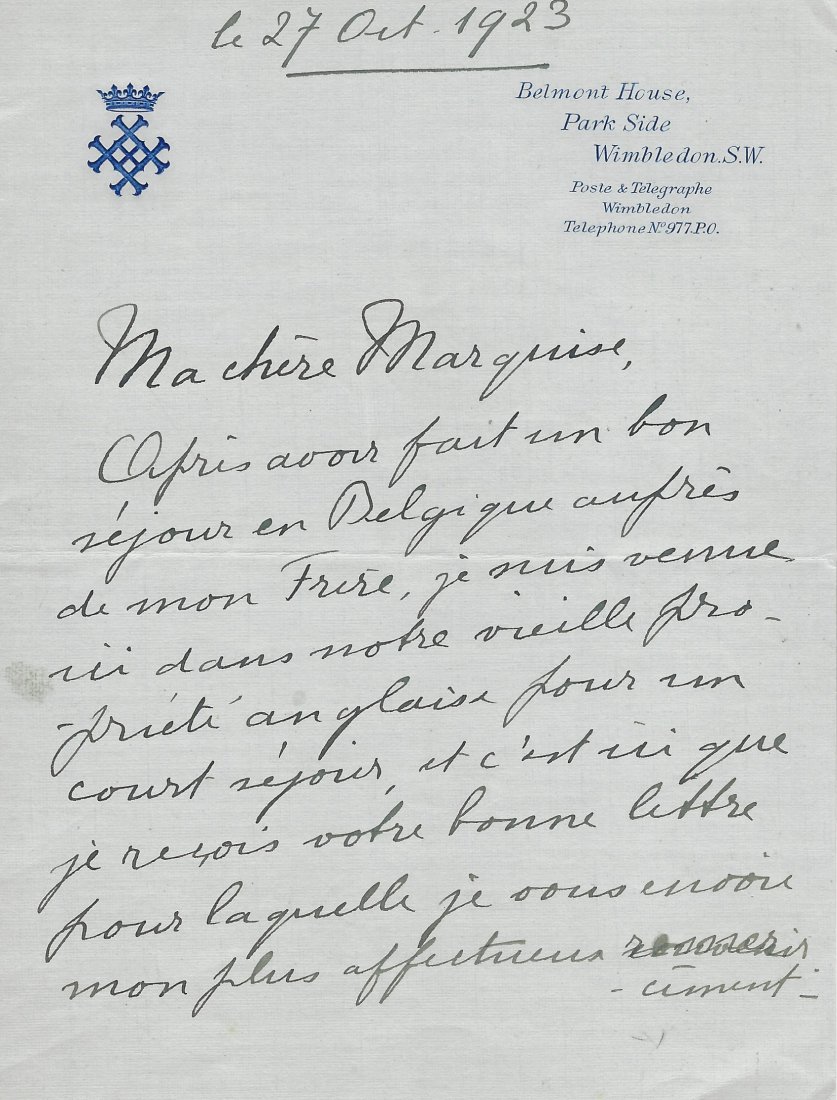 le 27 Oct. 1923
Belmont House,
Park Side
Wimbledon.S.W.
Poste & Telegraphe
Wimbledon
Telephone Nº 977.P.O.
Ma chère Marquise,
Après avoir fait un bon
séjour en Belgique auprès
de mon Frère, je suis venue
ici dans notre vieille pro-
-priété anglaise pour un
court séjour, et c'est ici que
je reçois votre bonne lettre
pour laquelle je vous envoie
mon plus affectueux remer
-ciment-